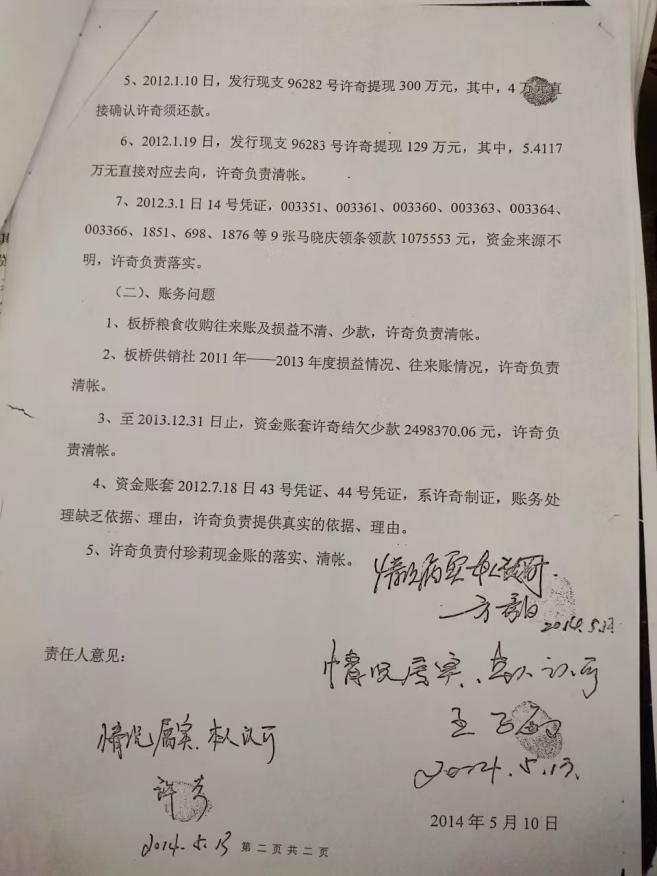 5、2012.1.10 日，发行现支 96282 号许奇提现 300 万元，其中，4 万元直
接确认许奇须还款。
6、2012.1.19 日，发行现支 96283 号许奇提现 129 万元，其中，5.4117
万无直接对应去向，许奇负责清帐。
7、2012.3.1 日 14 号凭证，003351、003361、003360、003363、003364、
003366、1851、698、1876 等 9 张马晓庆领条领款 1075553 元，资金来源不
明，许奇负责落实。
（二）、账务问题
1、板桥粮食收购往来账及损益不清、少款，许奇负责清帐。
2、板桥供销社 2011 年——2013 年度损益情况、往来账情况，许奇负责
清帐。
3、至 2013.12.31 日止，资金账套许奇结欠少款 2498370.06 元，许奇负
责清帐。
4、资金账套 2012.7.18 日 43 号凭证、44 号凭证，系许奇制证，账务处
理缺乏依据、理由，许奇负责提供真实的依据、理由。
5、许奇负责付珍莉现金账的落实、清帐。
情况属实、本人认可.
2014.5.13
责任人意见：
情况属实、本人认可
王
2014.5.13.
情况属实、本人认可
许奇
2014.5.13
2014 年 5 月 10 日
第 二 页 共 二 页